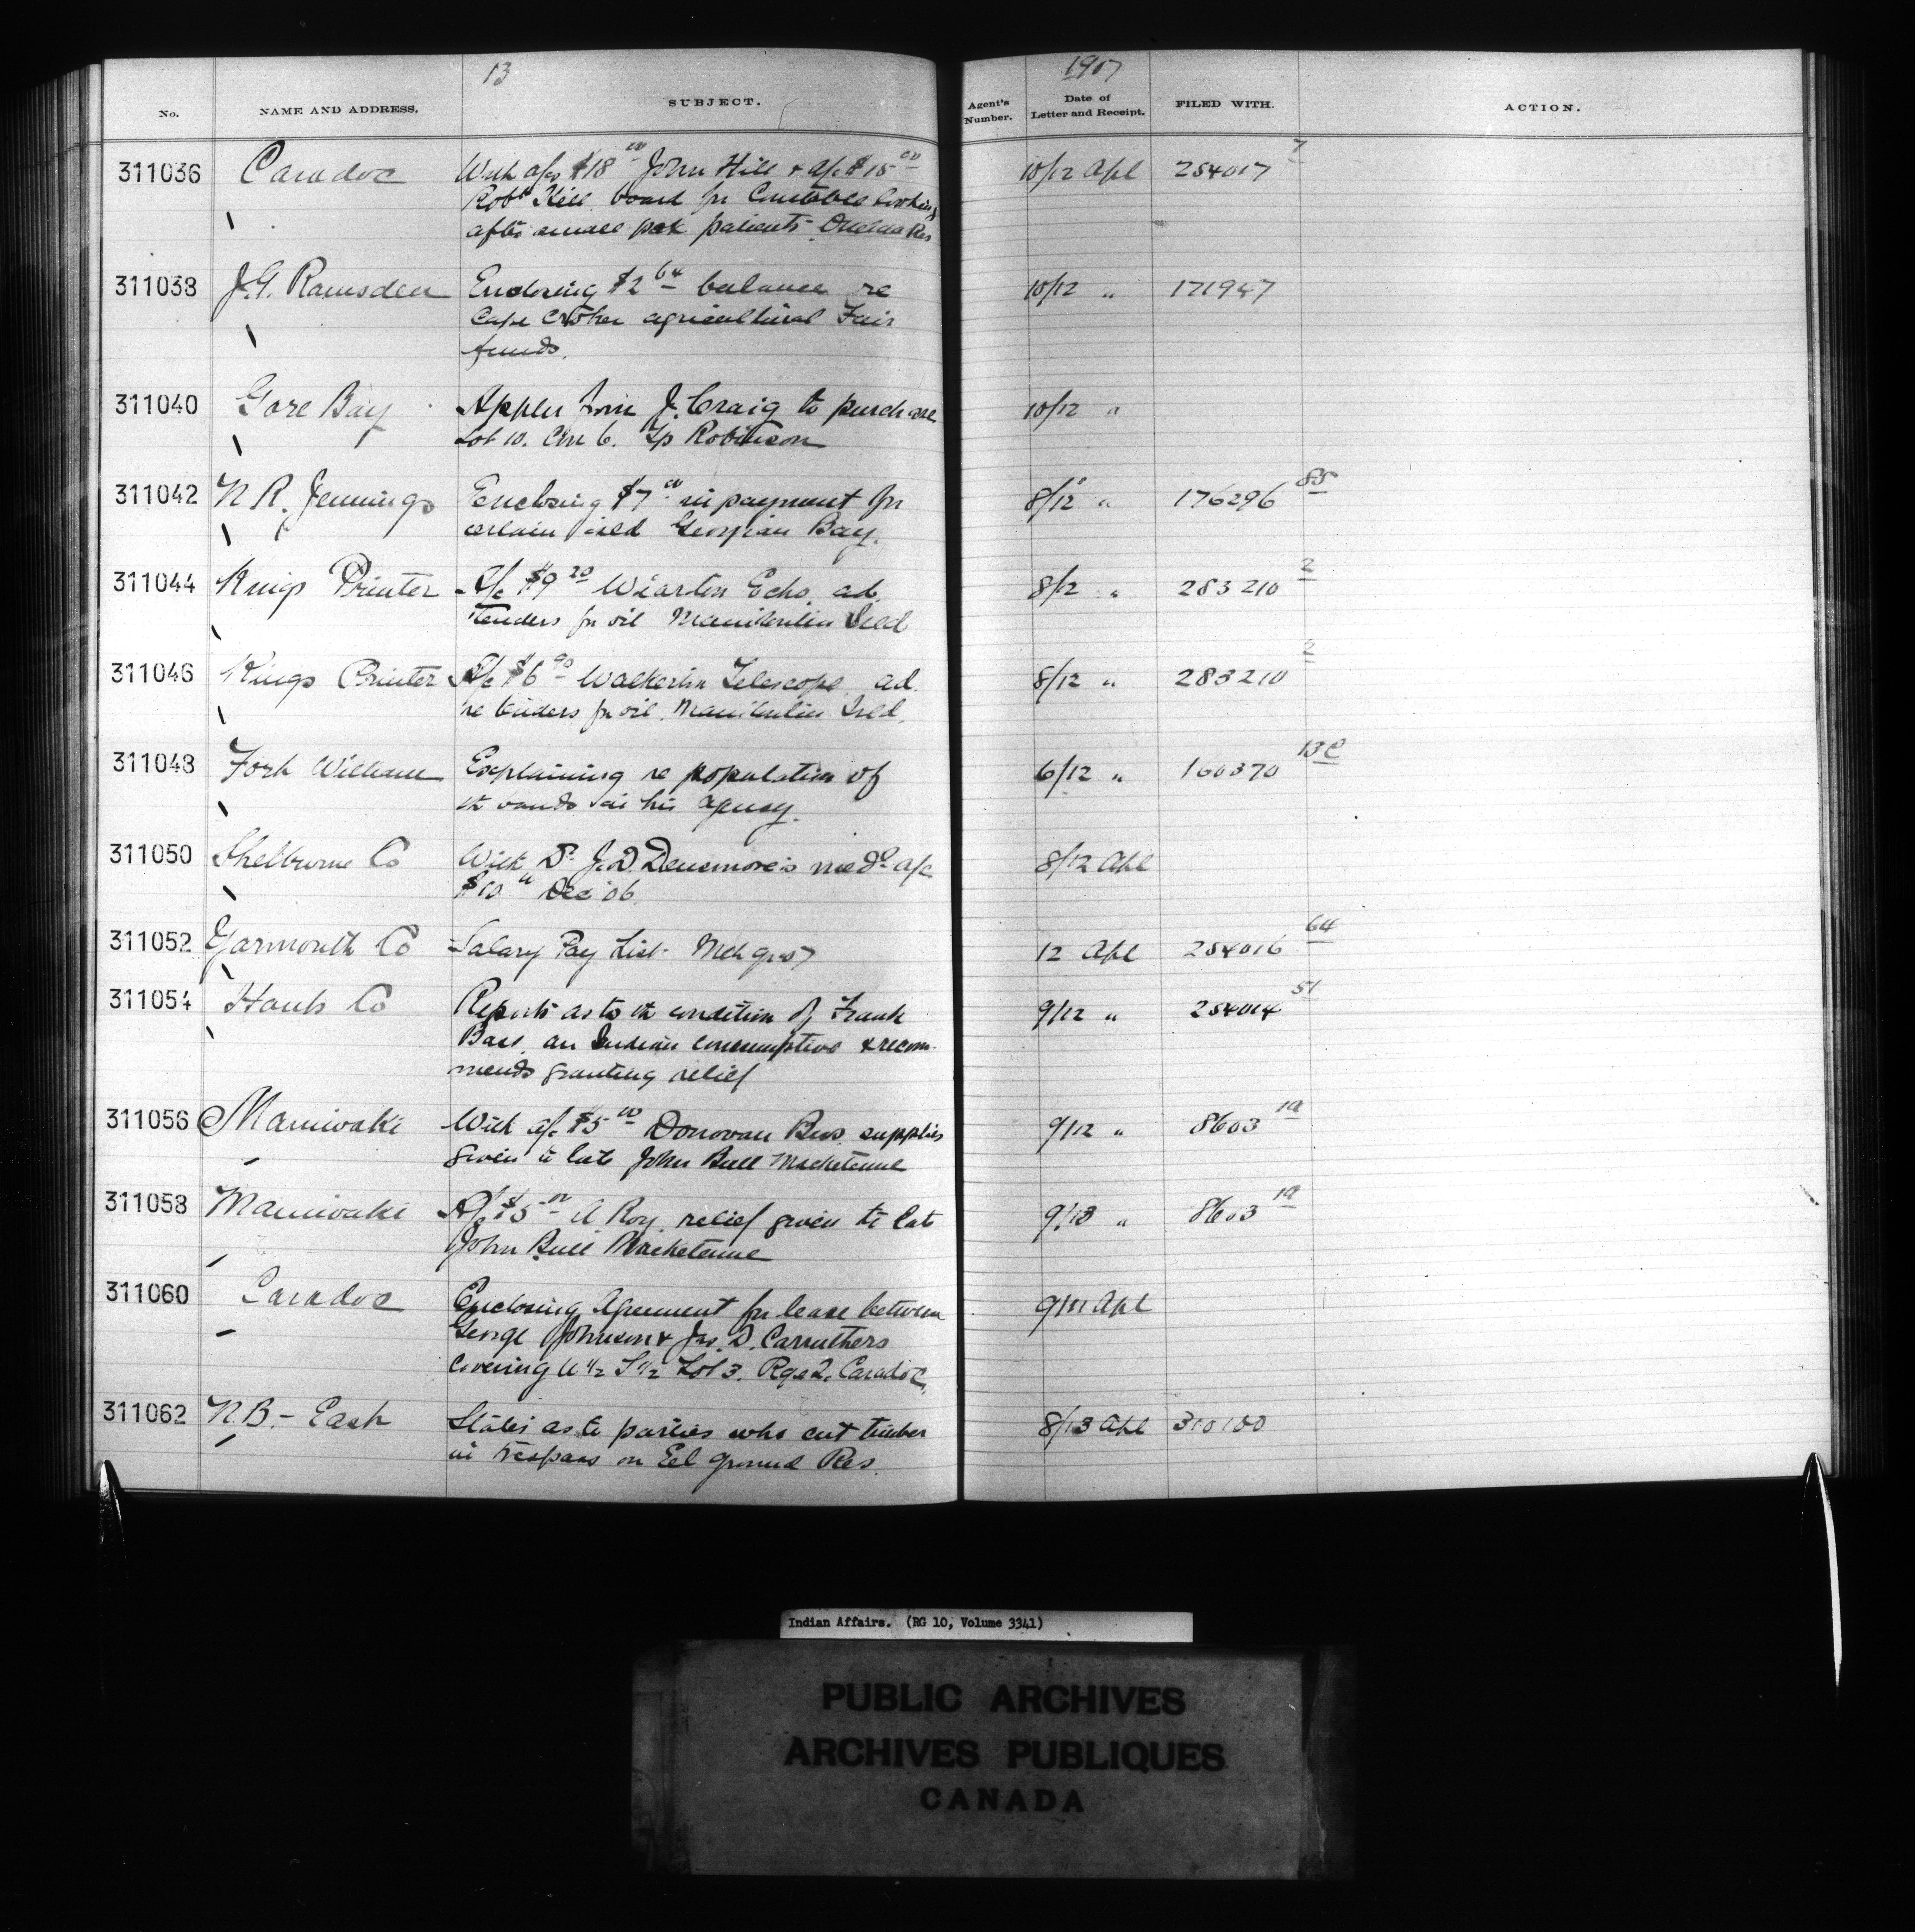 13
1907
No. NAME AND ADDRESS. SUBJECT. Agent's Number. Date of Letter and Receipt. FILED WITH. ACTION.
311036 Caradoc With a/cs $18 00 John Hill + a/c $15 00 10/12 Apl 254017 7
Robt Hill board for Constables looking
after small pox patients Oneida Res
311038 J.G. Ramsden Enclosing $2 64 balance re 10/12 " 171947
Cape Croker agricultural Fair
funds.
311040 Gore Bay Appln from J. Craig to purchase 10/12 "
Lot 10. Con 6. Tp Robinson
311042 N R. Jennings Enclosing $7 00 in payment for 8/12 " 176296 85
certain isld Georgian Bay.
311044 Kings Printer A/c $9 20 Wiarton Echo ad. 8/12 " 283210 2
tenders for oil Manitoulin Isld
311046 Kings Printer A/c $6 90 Walkerton Telescope ad. 8/12 " 283210 2
re tenders for oil Manitoulin Isld.
311048 Fort William Explaining re population of 6/12 " 160370 13 C
th bands in his agency.
311050 Shelburne Co With Dr J.D. Densmore's med a/c 8/12 Apl
$10 Dec '06
311052 Yarmouth Co Salary Pay List Mch qr 07 12 Apl 254016 64
311054 Hants Co Reports as to th condition of Frank 9/12 " 254014 51
an Indian consumptive & recom-
mends granting relief
311056 Maniwaki With a/c $5 00 Donovan Bros supplies 9/12 " 8603 19
given to late John Bull
311058 Maniwaki A/c $5 00 A. Roy relief given to late 9/13 " 8603 19
John Bull
311060 Caradoc Enclosing Agreement for lease between 9/11 Apl
George Johnson & Jas. D. Carruthers
covering 1/2 S 1/2 Lot 3. Rge 2. Caradoc.
311062 N.B. - East States as to parties who cut timber 8/13 Apl 310100
in trespass on Eel ground Res.
Indian Affairs. (RG 10, Volume 3341)
PUBLIC ARCHIVES
ARCHIVES PUBLIQUES
CANADA